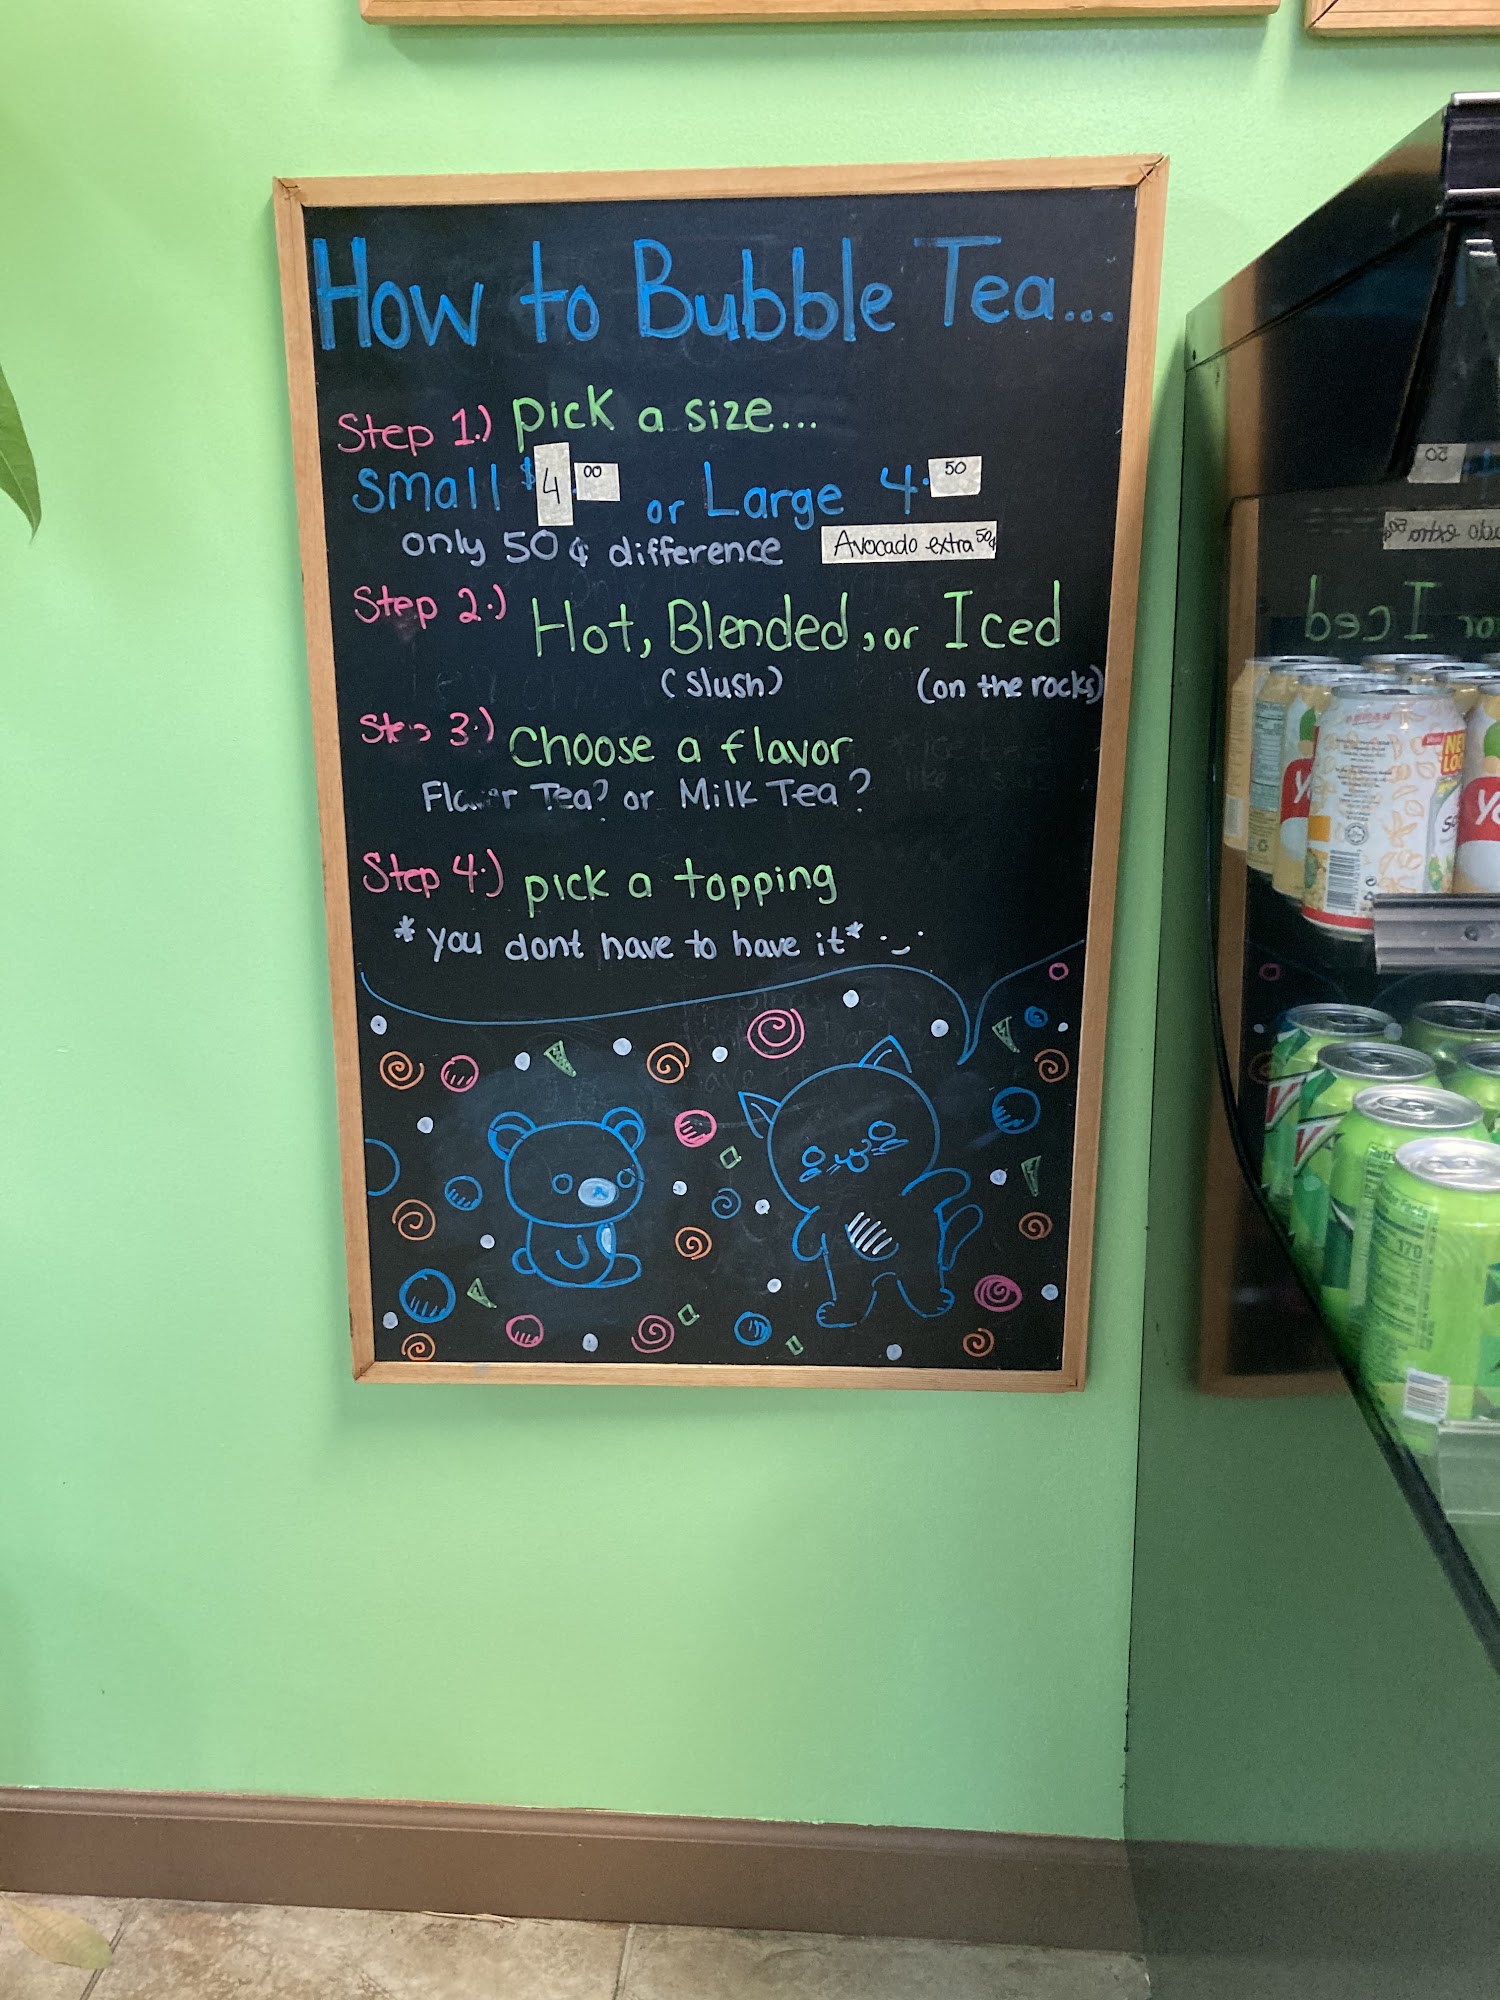 How to Bubble Tea...
Step 1.) pick a size...
small $4.00 or Large 4.50
only 50¢ difference Avocado extra 50¢
Step 2.) Hot, Blended, or Iced
(slush) (on the rocks)
Step 3.) Choose a flavor
Flavor Tea? or Milk Tea?
Step 4.) pick a topping
*you dont have to have it*
NE
LO
Yo
170